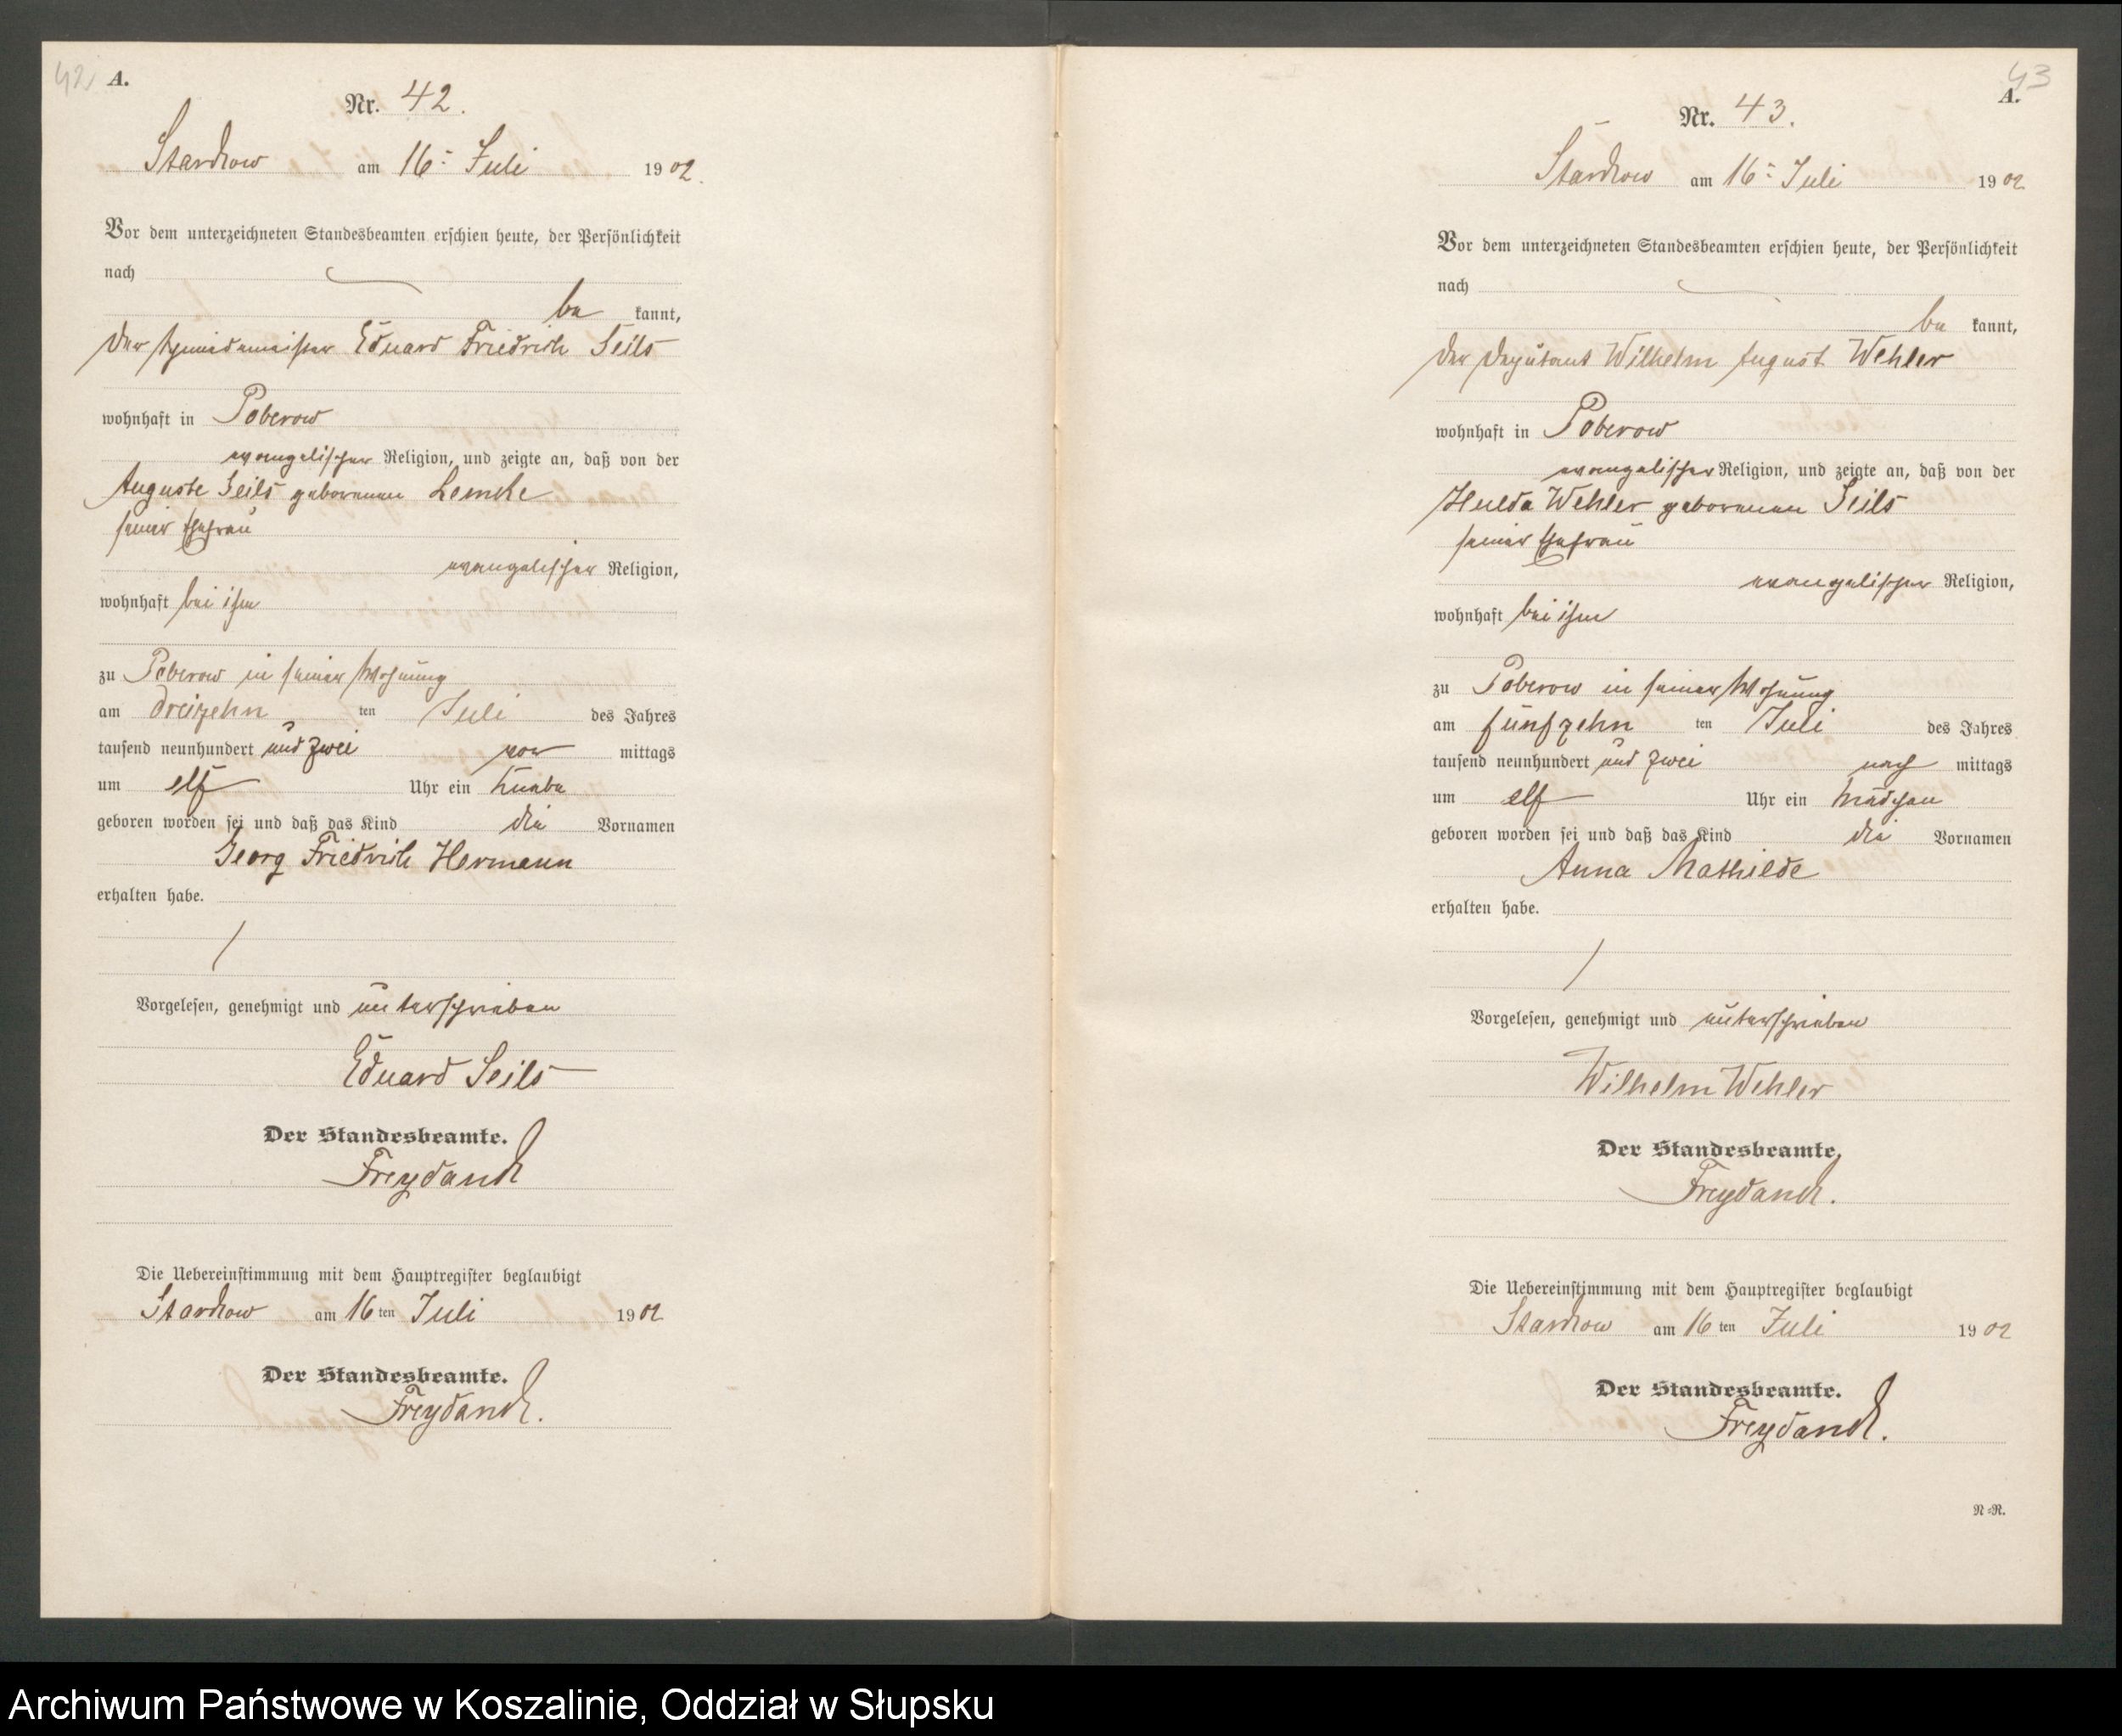 42 A.
Nr. 42.
Starkow am 16ᵗ Juli 1902.
Vor dem unterzeichneten Standesbeamten erschien heute, der Persönlichkeit
nach
be kannt,
der Schmiedemeister Eduard Friedrich Seils
wohnhaft in Poberow
evangelischer Religion, und zeigte an, daß von der
Auguste Seils geborenen Lemcke
seiner Ehefrau
evangelischer Religion,
wohnhaft bei ihm
zu Poberow in seiner Wohnung
am dreizehn ten Juli des Jahres
tausend neunhundert und zwei vor mittags
um elf Uhr ein Knabe
geboren worden sei und daß das Kind die Vornamen
Georg Friedrich Hermann
erhalten habe.
Vorgelesen, genehmigt und unterschrieben
Eduard Seils
Der Standesbeamte.
Freydanck
Die Uebereinstimmung mit dem Hauptregister beglaubigt
Starkow am 16 ten Juli 1902
Der Standesbeamte.
Freydanck.
43
A.
Nr. 43.
Starkow am 16ᵗ Juli 1902
Vor dem unterzeichneten Standesbeamten erschien heute, der Persönlichkeit
nach
be kannt,
der Deputant Wilhelm August Wehler
wohnhaft in Poberow
evangelischer Religion, und zeigte an, daß von der
Hulda Wehler geborenen Seils
seiner Ehefrau
evangelischer Religion,
wohnhaft bei ihm
zu Poberow in seiner Wohnung
am fünfzehn ten Juli des Jahres
tausend neunhundert und zwei nach mittags
um elf Uhr ein Mädchen
geboren worden sei und daß das Kind die Vornamen
Anna Mathilde
erhalten habe.
Vorgelesen, genehmigt und unterschrieben
Wilhelm Wehler
Der Standesbeamte.
Freydanck.
Die Uebereinstimmung mit dem Hauptregister beglaubigt
Starkow am 16 ten Juli 1902
Der Standesbeamte.
Freydanck.
N=R.
Archiwum Państwowe w Koszalinie, Oddział w Słupsku